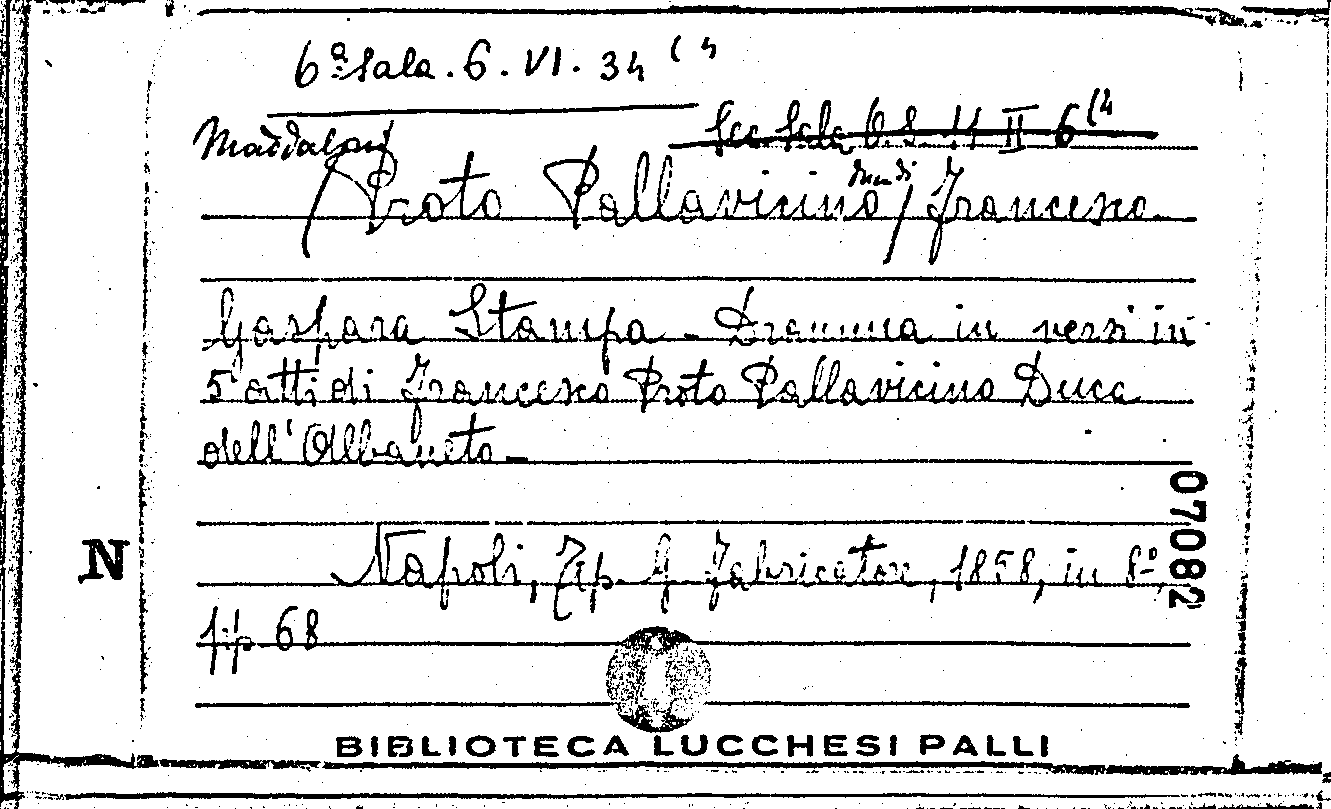 6ª Sala. 6. VI. 34 (4
Maddaloni
Sala 6. S. 14 II 6 (4
(Proto Pallavicino) Francesco
Gaspara Stampa - Dramma in versi in
5 atti di Francesco Proto Pallavicino Duca
dell'Albaneto -
07082
N
Napoli, Tip. G. Fabricatore, 1858, in 8º,
pp. 68
BIBLIOTECA LUCCHESI PALLI